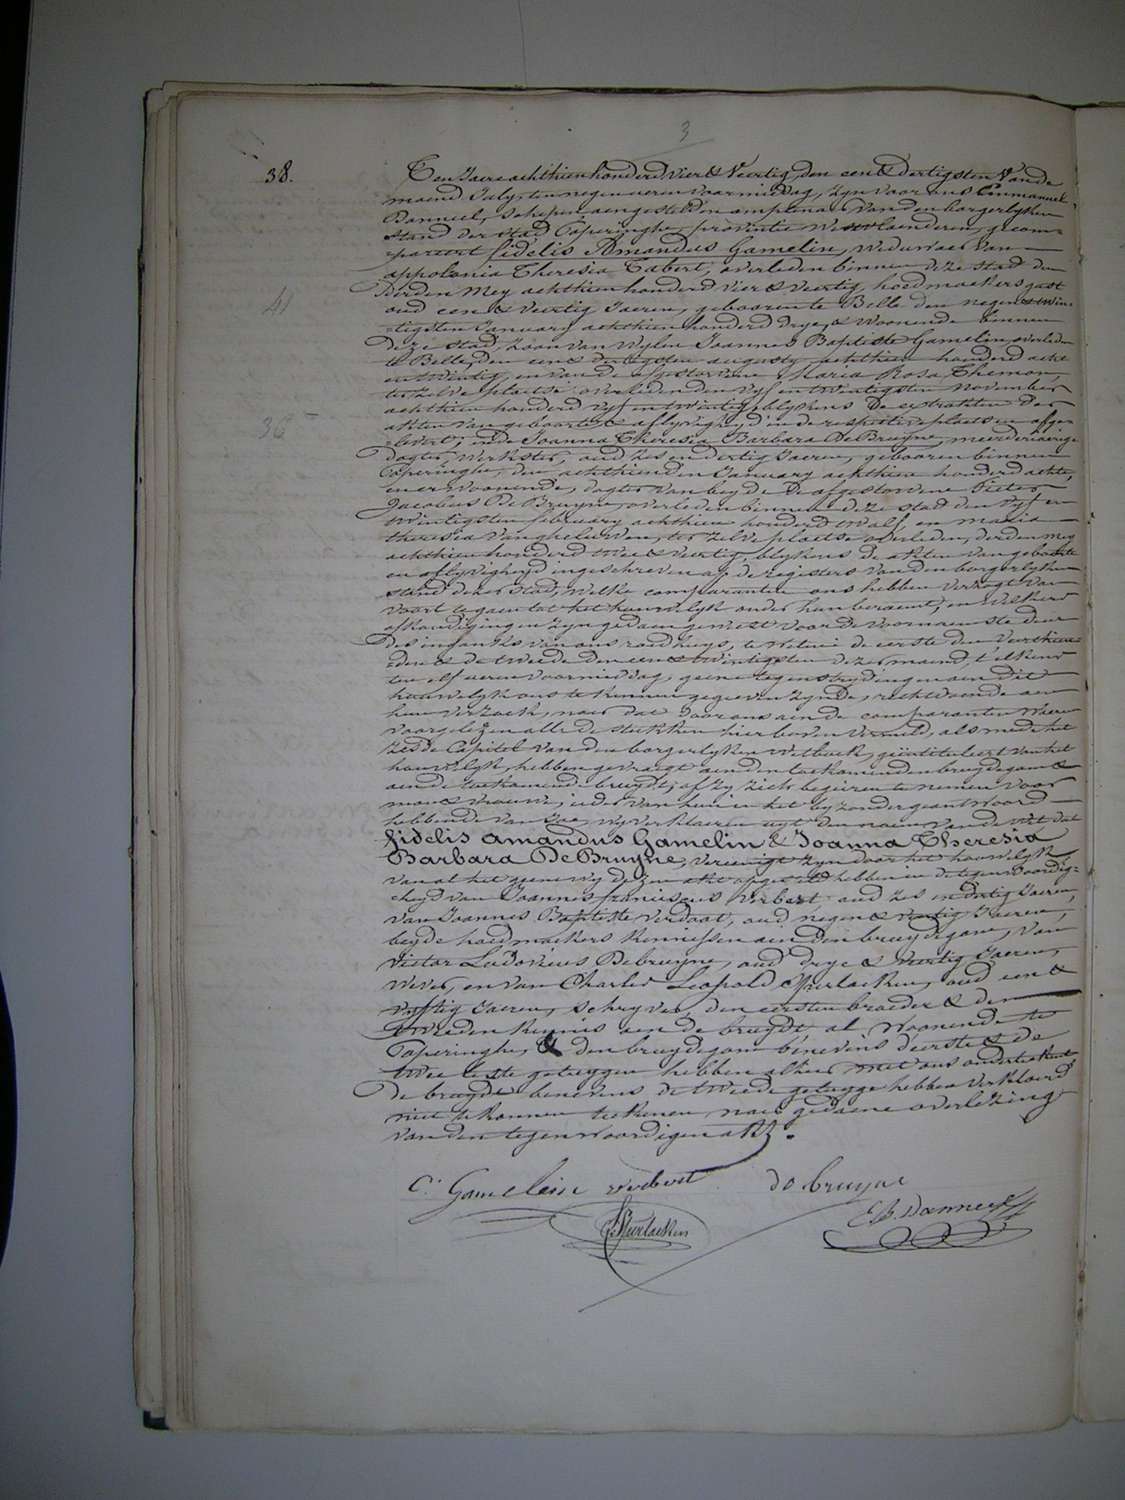 3
38.
Ten Jaere achthien honderd vier & Veertig, den een & dertigsten Van de
maend July, ten negen ueren voormiddag, zyn voor ons Emmanuel
Danneel, schepen aengestelden amptenaer van den borgerlyken
stand der stad Poperinghe, provintie Westvlaenderen, gecom-
pareert fidelis Amandus Gamelin, Weduwaer van
appolonia Theresia Tabert, overleden binnen deze stad den
Derden Mey achthien honderd Vier & Veertig, hoedmaekers gast
oud een & Veertig Jaeren, gebooren te Belle den negen & twin-
tigsten January achthien honderd drye, & Woonende binnen
deze stad, zoon van Wylen Joannes Baptiste Gamelin, overleden
te Belle, den een & dertigsten augusty achthien honderd acht
en twintig, en van de afgestorvene Maria Rosa Themon,
ter zelve plaetse overleden den vyf en twintigsten November
achthien honderd vyf en twintig, blykens de extrakten der
akten van geboorte & aflyvigheyd in de respective plaetsen afge-
levert, ende Joanna Theresia Barbara De Bruyne, meerderjaerige
dogter, Werkster, oud zes en dertig Jaeren, gebooren binnen
Poperinghe, den achthienden January achthien honderd achte,
en er woonende, dogter van beyde de afgestorvene Pieter
Jacobus De Bruyne, overleden binnen deze stad den vyf en
twintigsten february achthien honderd twalf, en maria
theresia Vanghelueven, ter zelve plaetse overleden, derden mey
achthien honderd twee & veertig, blykens de akten van geboorte
en aflyvigheyd ingeschreven op de registers van den borgerlyken
stand dezer stad; Welke comparanten ons hebben verzogt van
voort te gaen tot het houwelyk onder hun beraemt, en welkers
afkondigingen zyn gedaen geweest voor de voornaemste deur
des ingangs van ons raedhuys, te weten: de eerste den veerthien-
den & de tweede den een & twintigsten dezer maend, t'elkens
ten elf ueren voormiddag, geene tegenstrydingen aen dit
houwelyk ons te kennen gegeven zynde, rechtdoende aen
hun verzoek, naer dat door ons aen de comparanten waeren
voorgelezen alle de stukken hier boven vermeld, als mede het
zesde Capitel van den borgerlyken Wetboek, geintituleert van het
houwelyk, hebben gevraegt aen den toekomenden bruydegom &
aen de toekomende bruydt, of zy zich begeiren te nemen voor
man & vrouwe, ieder van hun in het byzonder geantwoord
hebbende van Jae, wy verklaeren uyt den naem van de wet dat
fidelis amandus Gamelin & Joanna Theresia
Barbara De Bruyne, vereenigt zyn door het houwelyk
van al het geene wy dezen akt opgesteld hebben in de tegenwoordig-
heyd van Joannes franciscus Verbert oud zes en dertig Jaeren,
van Joannes Baptiste Verdoat, oud negen & veertig Jaeren,
beyde hoedmaekers kennissen aen den bruydegom, van
Victor Ludovicus Debruyne, oud drye & veertig Jaeren,
Wever, en van Charles Leopold Speerlaeken, oud een &
vyftig Jaeren, schryver, den eersten broeder & den
tweeden kennis aen de bruydt, al woonende te
Poperinghe, & den bruydegom benevens d'eerste & de
twee leste getuygen hebben alhier met ons onderteekend
De bruydt benevens de tweede getuyge hebben verklaerd
niet te konnen teekenen, naer gedaene overlezing
van den tegenwoordigen akt.
C. Gamelein verbert de bruyne
Speerlaeken
E B. Danneel
41
36